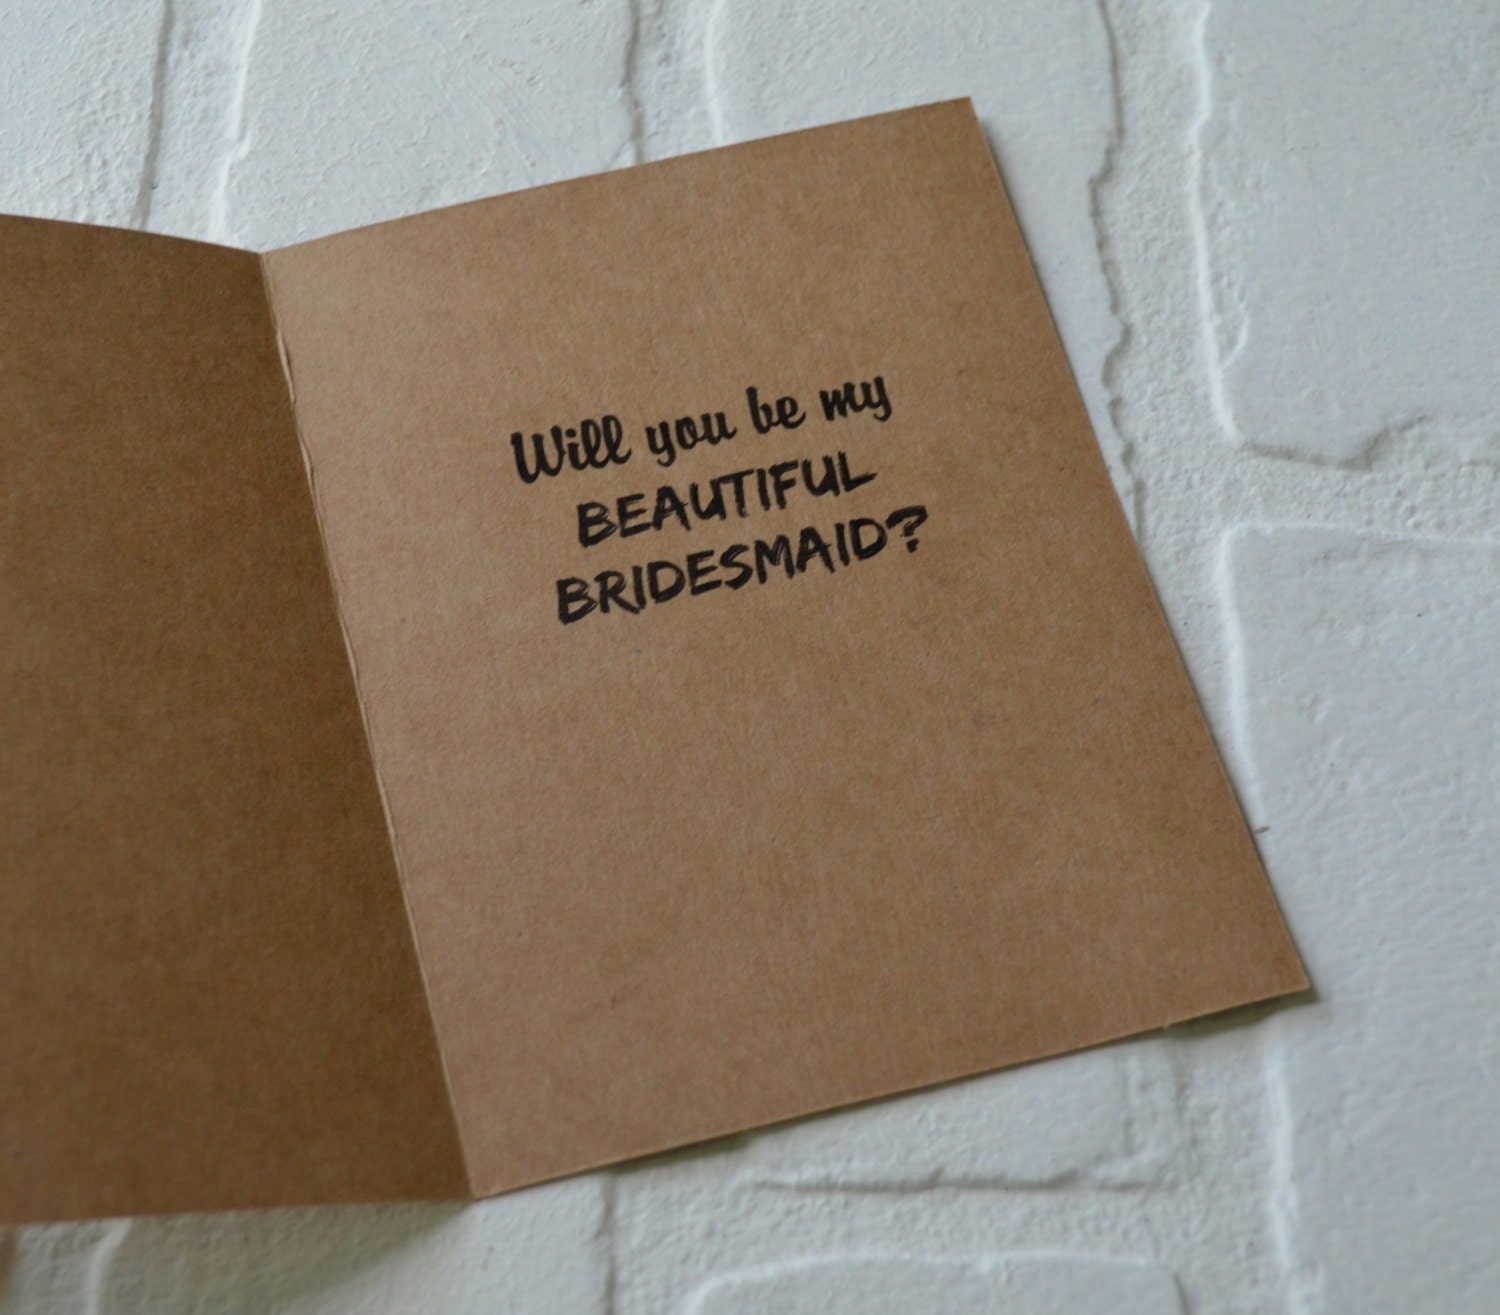 Will you be my
BEAUTIFUL
BRIDESMAID?